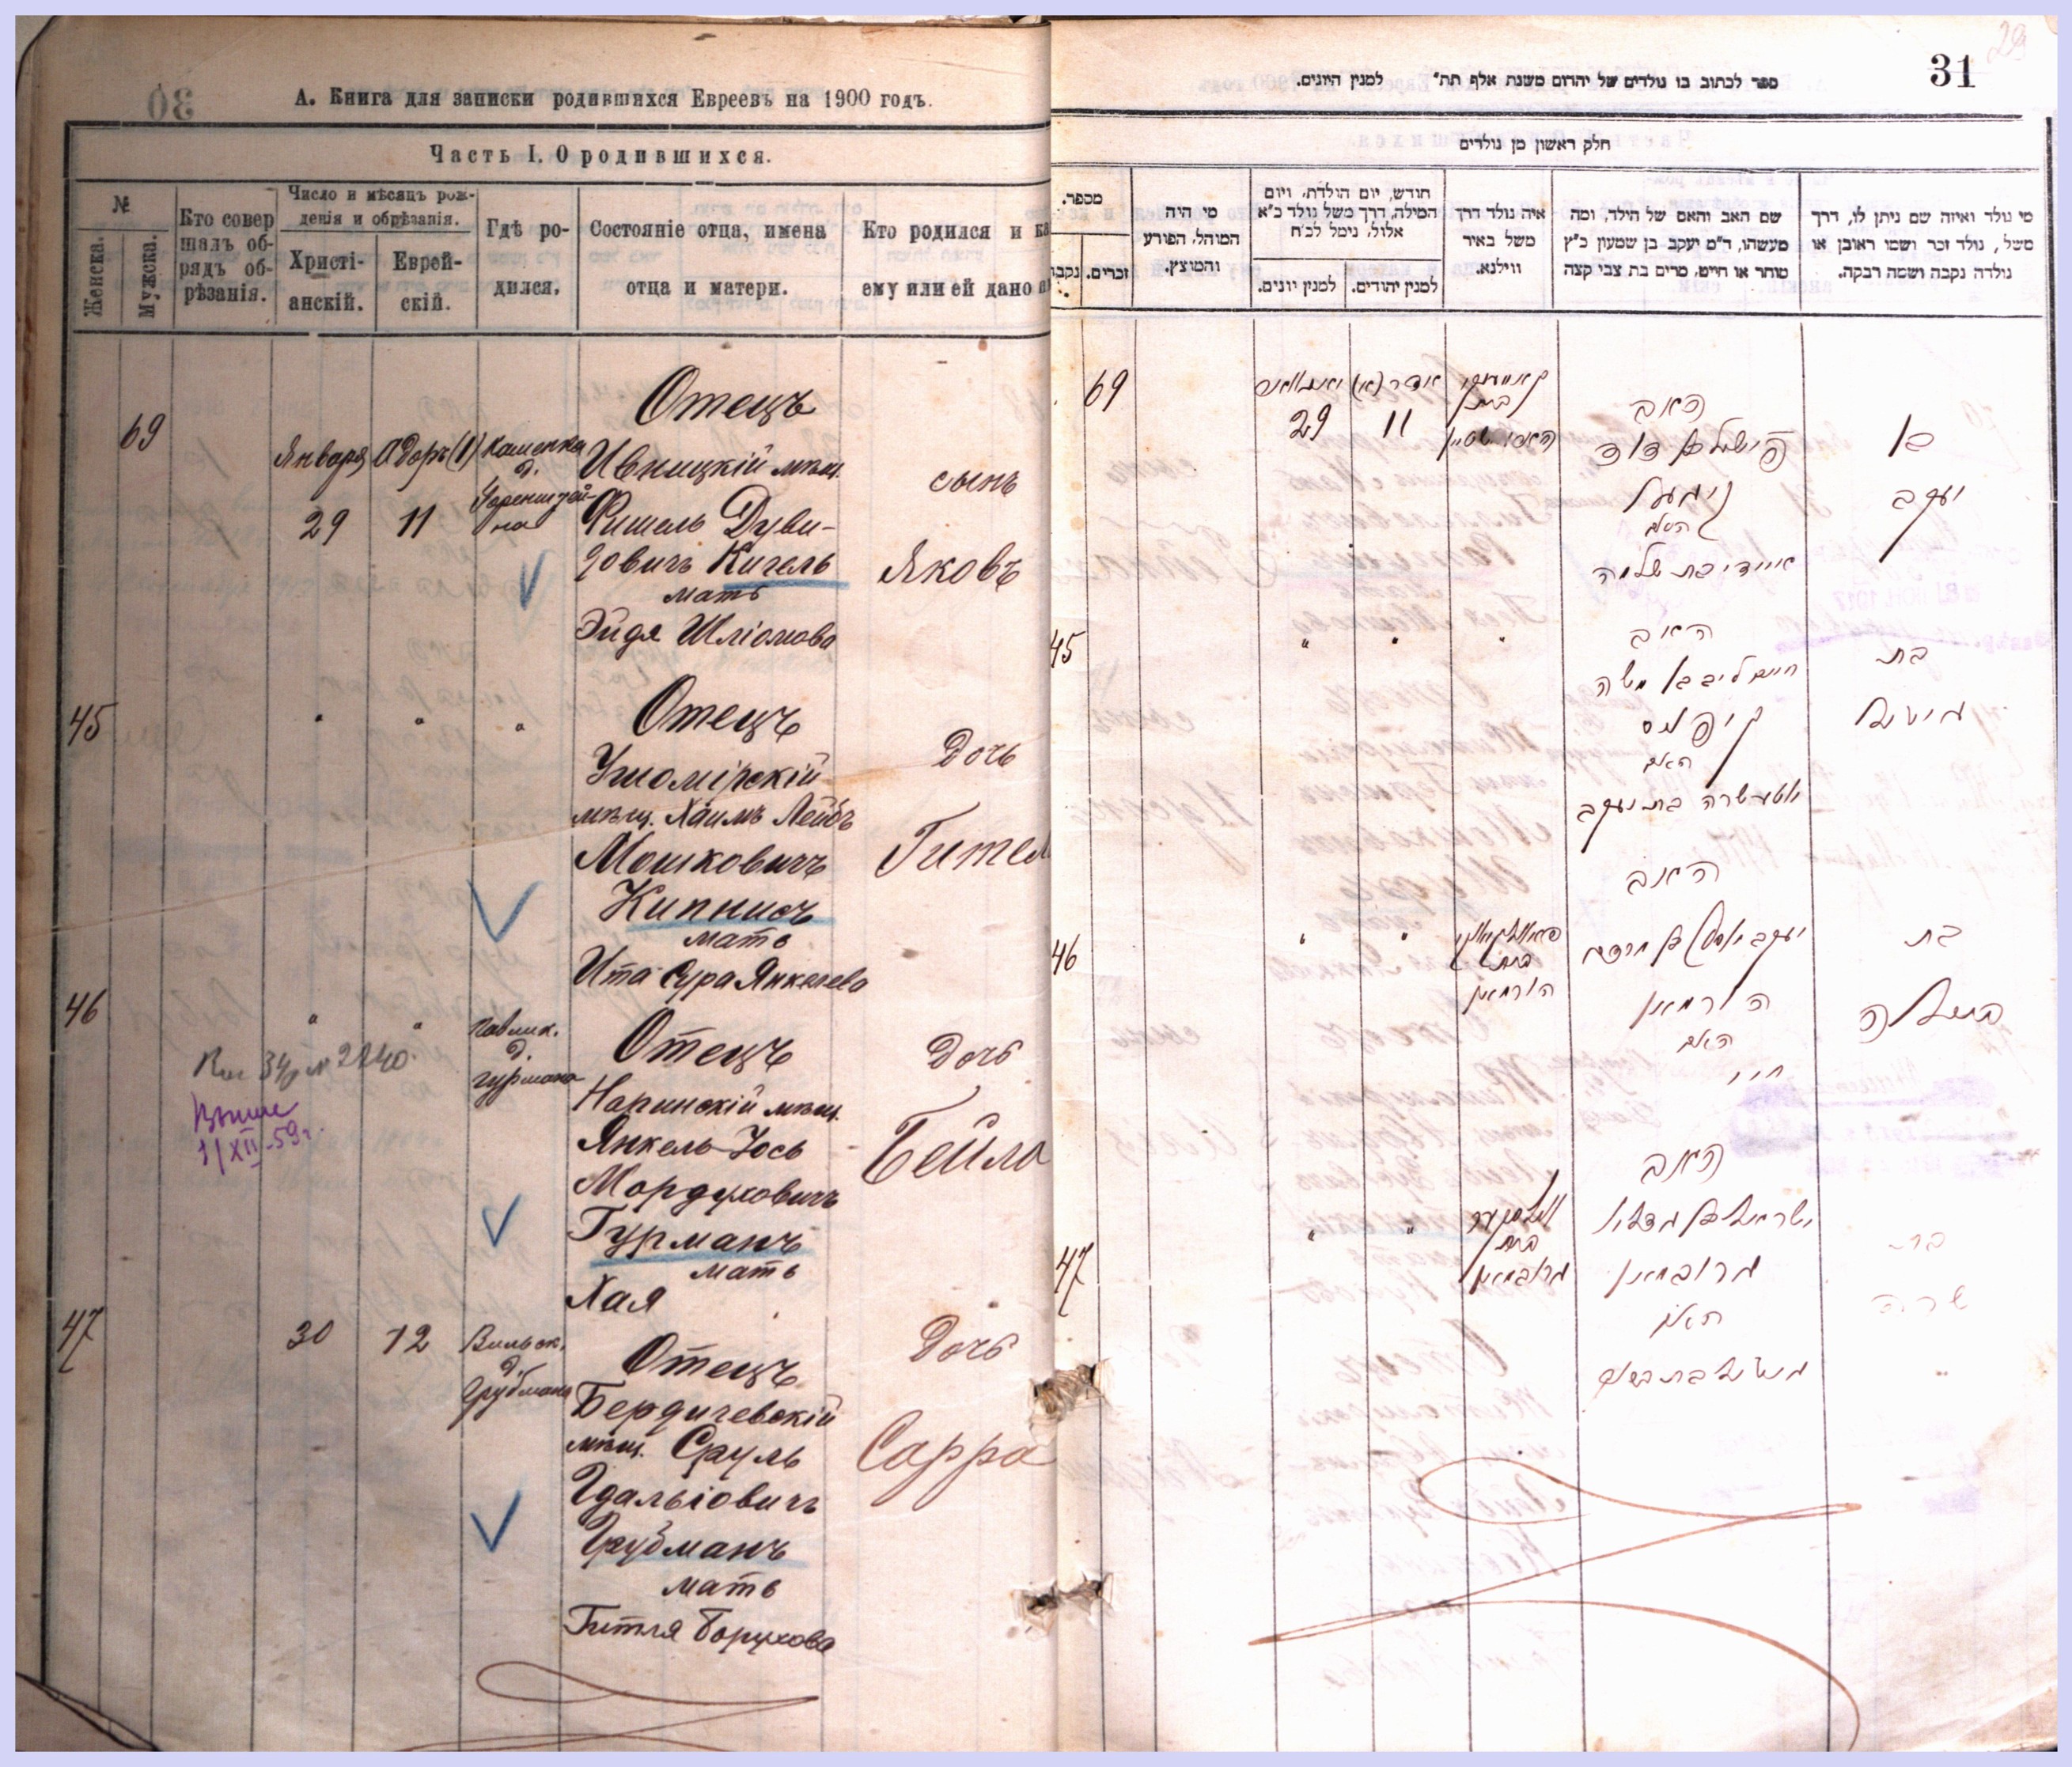 А. Книга для записки родившихся Евреевъ на 1900 годъ.
Часть I. О родившихся.
№
Женска.
Мужска.
Кто совер
шалъ об-
рядъ об-
рѣзанія.
Число и мѣсяцъ рож-
денія и обрѣзанія.
Христі-
анскій.
Еврей-
скій.
Гдѣ ро-
дился.
Состояніе отца, имена
отца и матери.
Кто родился и ка
ему или ей дано и
69
Января
29
Адоръ (1)
11
Каменка
д.
Горенштей-
на
Отецъ
Ивницкій мѣщ.
Фишель Дуви-
довичъ Кигель
мать
Эйдя Шліомова
сынъ
Яковъ
45
"
"
"
Отецъ
Ушомірскій
мѣщ. Хаимъ Лейбъ
Мошковичъ
Кипнисъ
мать
Ита Сура Янкелева
Дочь
Гител
46
"
"
Павлик.
д.
Гурмана
Отецъ
Норинскій мѣщ.
Янкель-Іось
Мордуховичъ
Гурманъ
мать
Хая
Дочь
Бейла
1/XII-59г.
47
30
12
Вильск.
д.
Грубмана
Отецъ
Бердичевскій
мѣщ. Сруль
Гдальіовичъ
Грубманъ
мать
Гитля Борухова
Дочь
Сарра
30
29
31
ספר לכתוב בו נולדים של יהדום משנת אלף תת״ למנין היונים.
חלק ראשון מן נולדים
מספר.
נקבו
זכרים.
מי היה
המוהל, הפורע
והמוצץ.
חודש, יום הולדת, ויום
המילה, דרך משל נולד כ״א
אלול, נימל לכ״ח
למנין יונים.
למנין יהודים.
איה נולד דרך
משל באיר
ווילנא.
שם האב והאם של הילד, ומה
מעשהו, ד״מ יעקב בן שמעון כ״ץ
סוחר או חייט, מרים בת צבי קצה
מי נולד ואיזה שם ניתן לו, דרך
משל, נולד זכר ושמו ראובן או
נולדה נקבה ושמה רבקה.
69
29
אדר (א)
11
האב
פישל ב דוד
קיגעל
האם
איידי בת שלמה
בן
יעקב
45
"
"
"
האב
חיים ליב בן משה
קיפניס
האם
איטע שרה בת יעקב
בת
גיטל
46
"
"
בית
הורמאן
האב
יעקב יוסף בן מרדכי
הורמאן
האם
חי׳
בת
ביילה
47
"
"
בית
גרובמאן
האב
ישראל בן גדליו
גרובמאן
האם
גיטל בת ברוך
בת
שרה